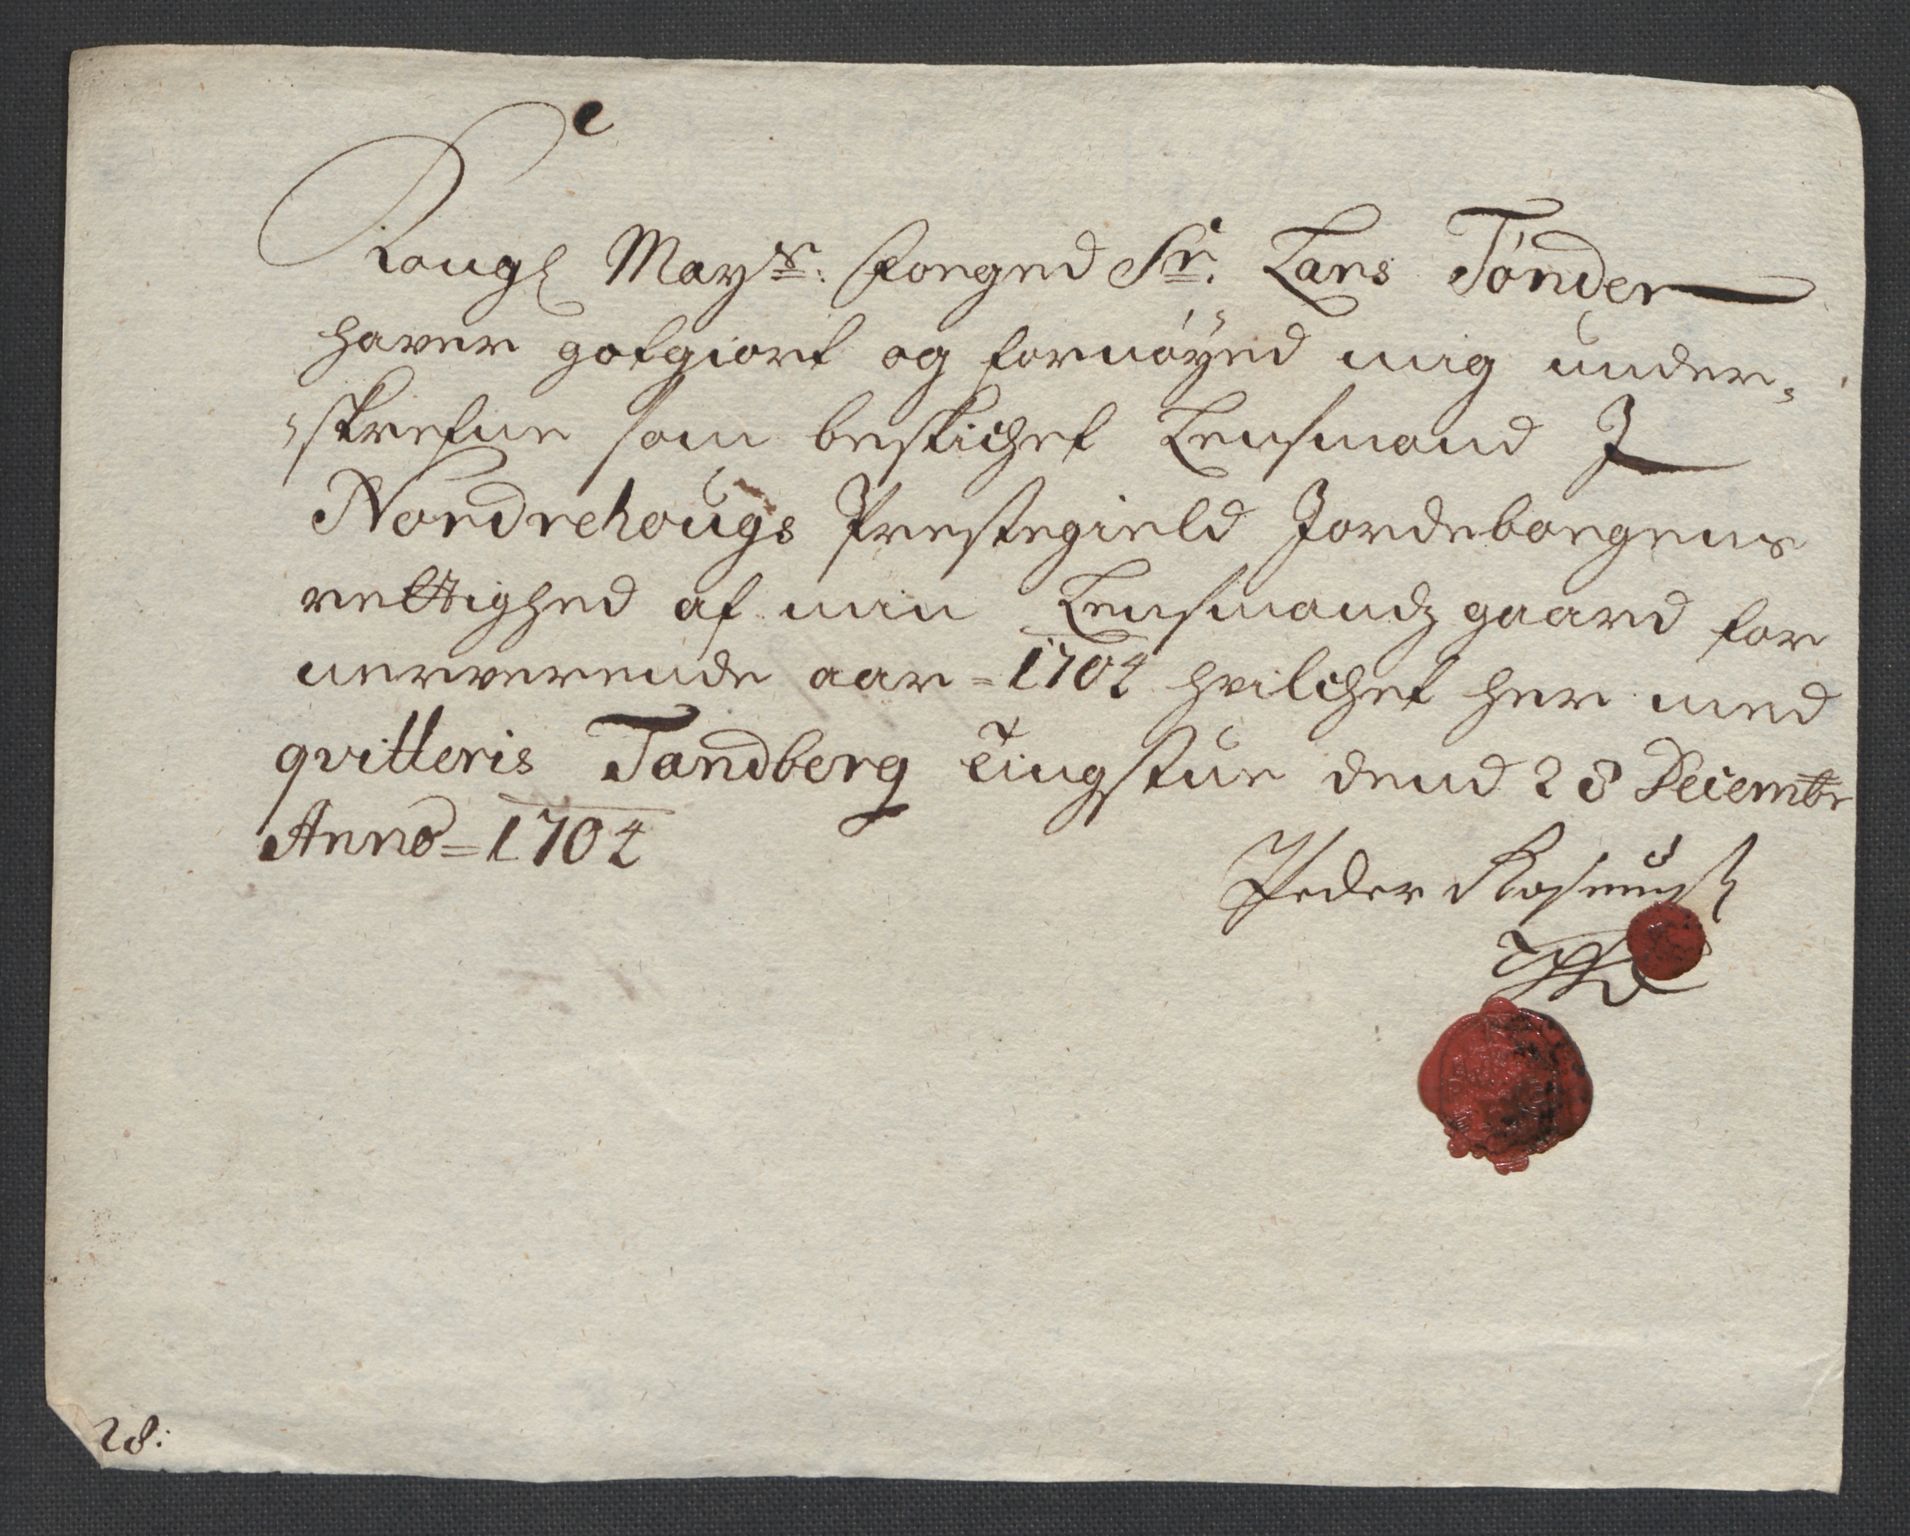 Kongl May.ts: Foeged Sr. Lars Tönder
haver gotgiort og fornöyed mig under-
skrefne som beskichet Lensmand J
Nordrehougs Prestegield Jordeboegens
rettighed af min Lensmandz gaard for
nerverende aar = 1704 hvilchet her med
qvitteris Tandberg Tingstue dend 28 Decembr
Anno = 1704
Peder
28: